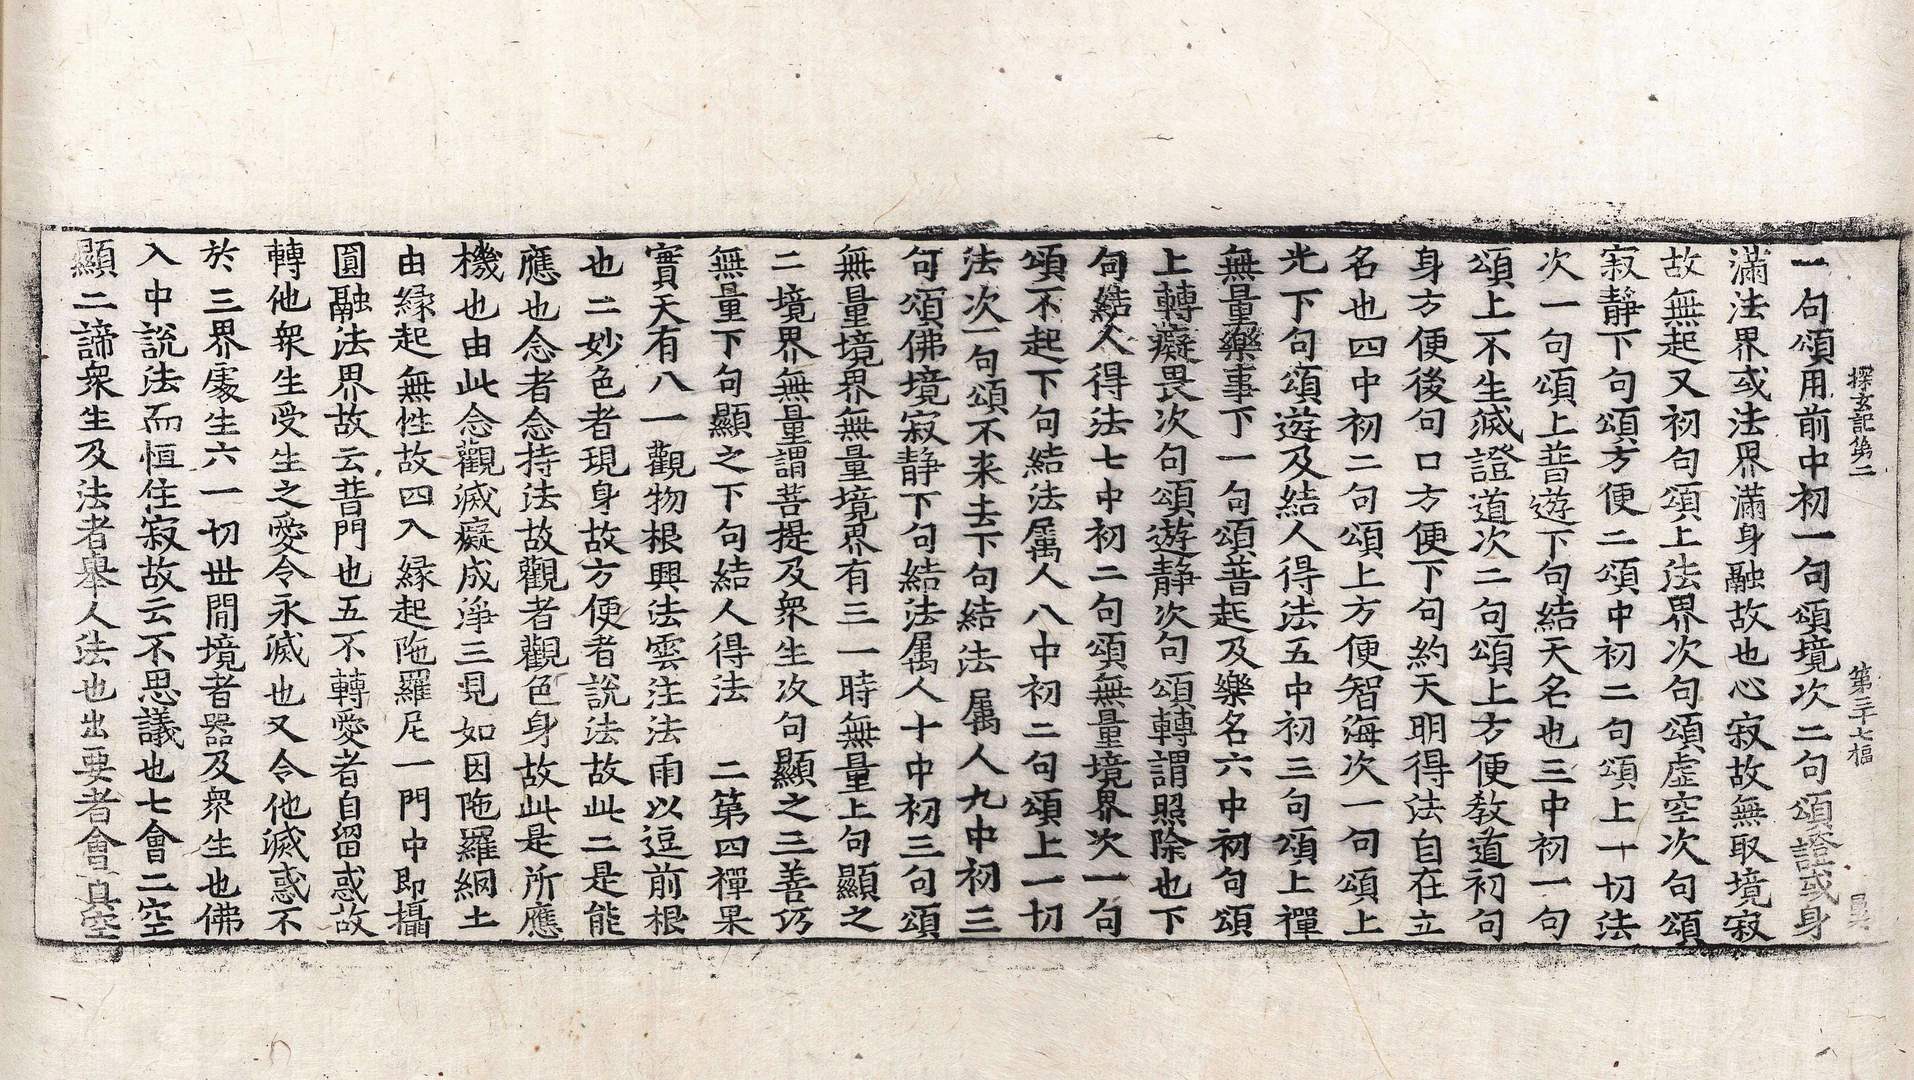 探玄記第二 第三十七幅
一句頌用前中初一句頌境次二句頌證或身
滿法界或法界滿身融故也心寂故無取境寂
故無起又初句頌上法界次句頌虛空次句頌
寂靜下句頌方便二頌中初二句頌上一切法
次一句頌上普遊下句結天名也三中初一句
頌上不生滅證道次二句頌上方便教道初句
身方便後句口方便下句約天明得法自在立
名也四中初二句頌上方便智海次一句頌上
光下句頌遊及結人得法五中初三句頌上禪
無量樂事下一句頌普起及樂名六中初句頌
上轉癡畏次句頌遊靜次句頌轉謂照除也下
句結人得法七中初二句頌無量境界次一句
頌不起下句結法属人八中初二句頌上一切
法次一句頌不来去下句結法属人九中初三
句頌佛境寂静下句結法属人十中初三句頌
無量境界無量境界有三一時無量上句顯之
二境界無量謂菩提及衆生次句顯之三善巧
無量下句顯之下句結人得法 二第四禪果
實天有八一觀物根興法雲注法雨以逗前根
也二妙色者現身故方便者說法故此二是能
應也念者念持法故觀者觀色身故此是所應
機也由此念觀滅癡成淨三見如因陁羅網土
由緣起無性故四入緣起陁羅尼一門中即攝
圓融法界故云普門也五不轉愛者自留惑故
轉他衆生受生之愛令永滅也又令他滅惑不
於三界處生六一切世間境者器及衆生也佛
入中說法而恒住寂故云不思議也七會二空
顯二諦衆生及法者舉人法也出要者會真空